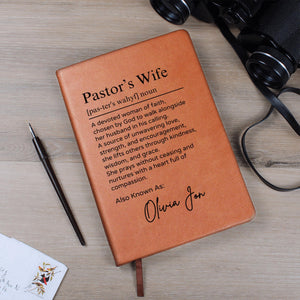 Pastor's Wife
[pas-ter's wahyf] noun
A devoted woman of faith,
chosen by God to walk alongside
her husband in his calling.
A source of unwavering love,
strength, and encouragement,
she lifts others through kindness,
wisdom, and grace.
She prays without ceasing and
nurtures with a heart full of
compassion.
Also Known As:
Olivia Jon